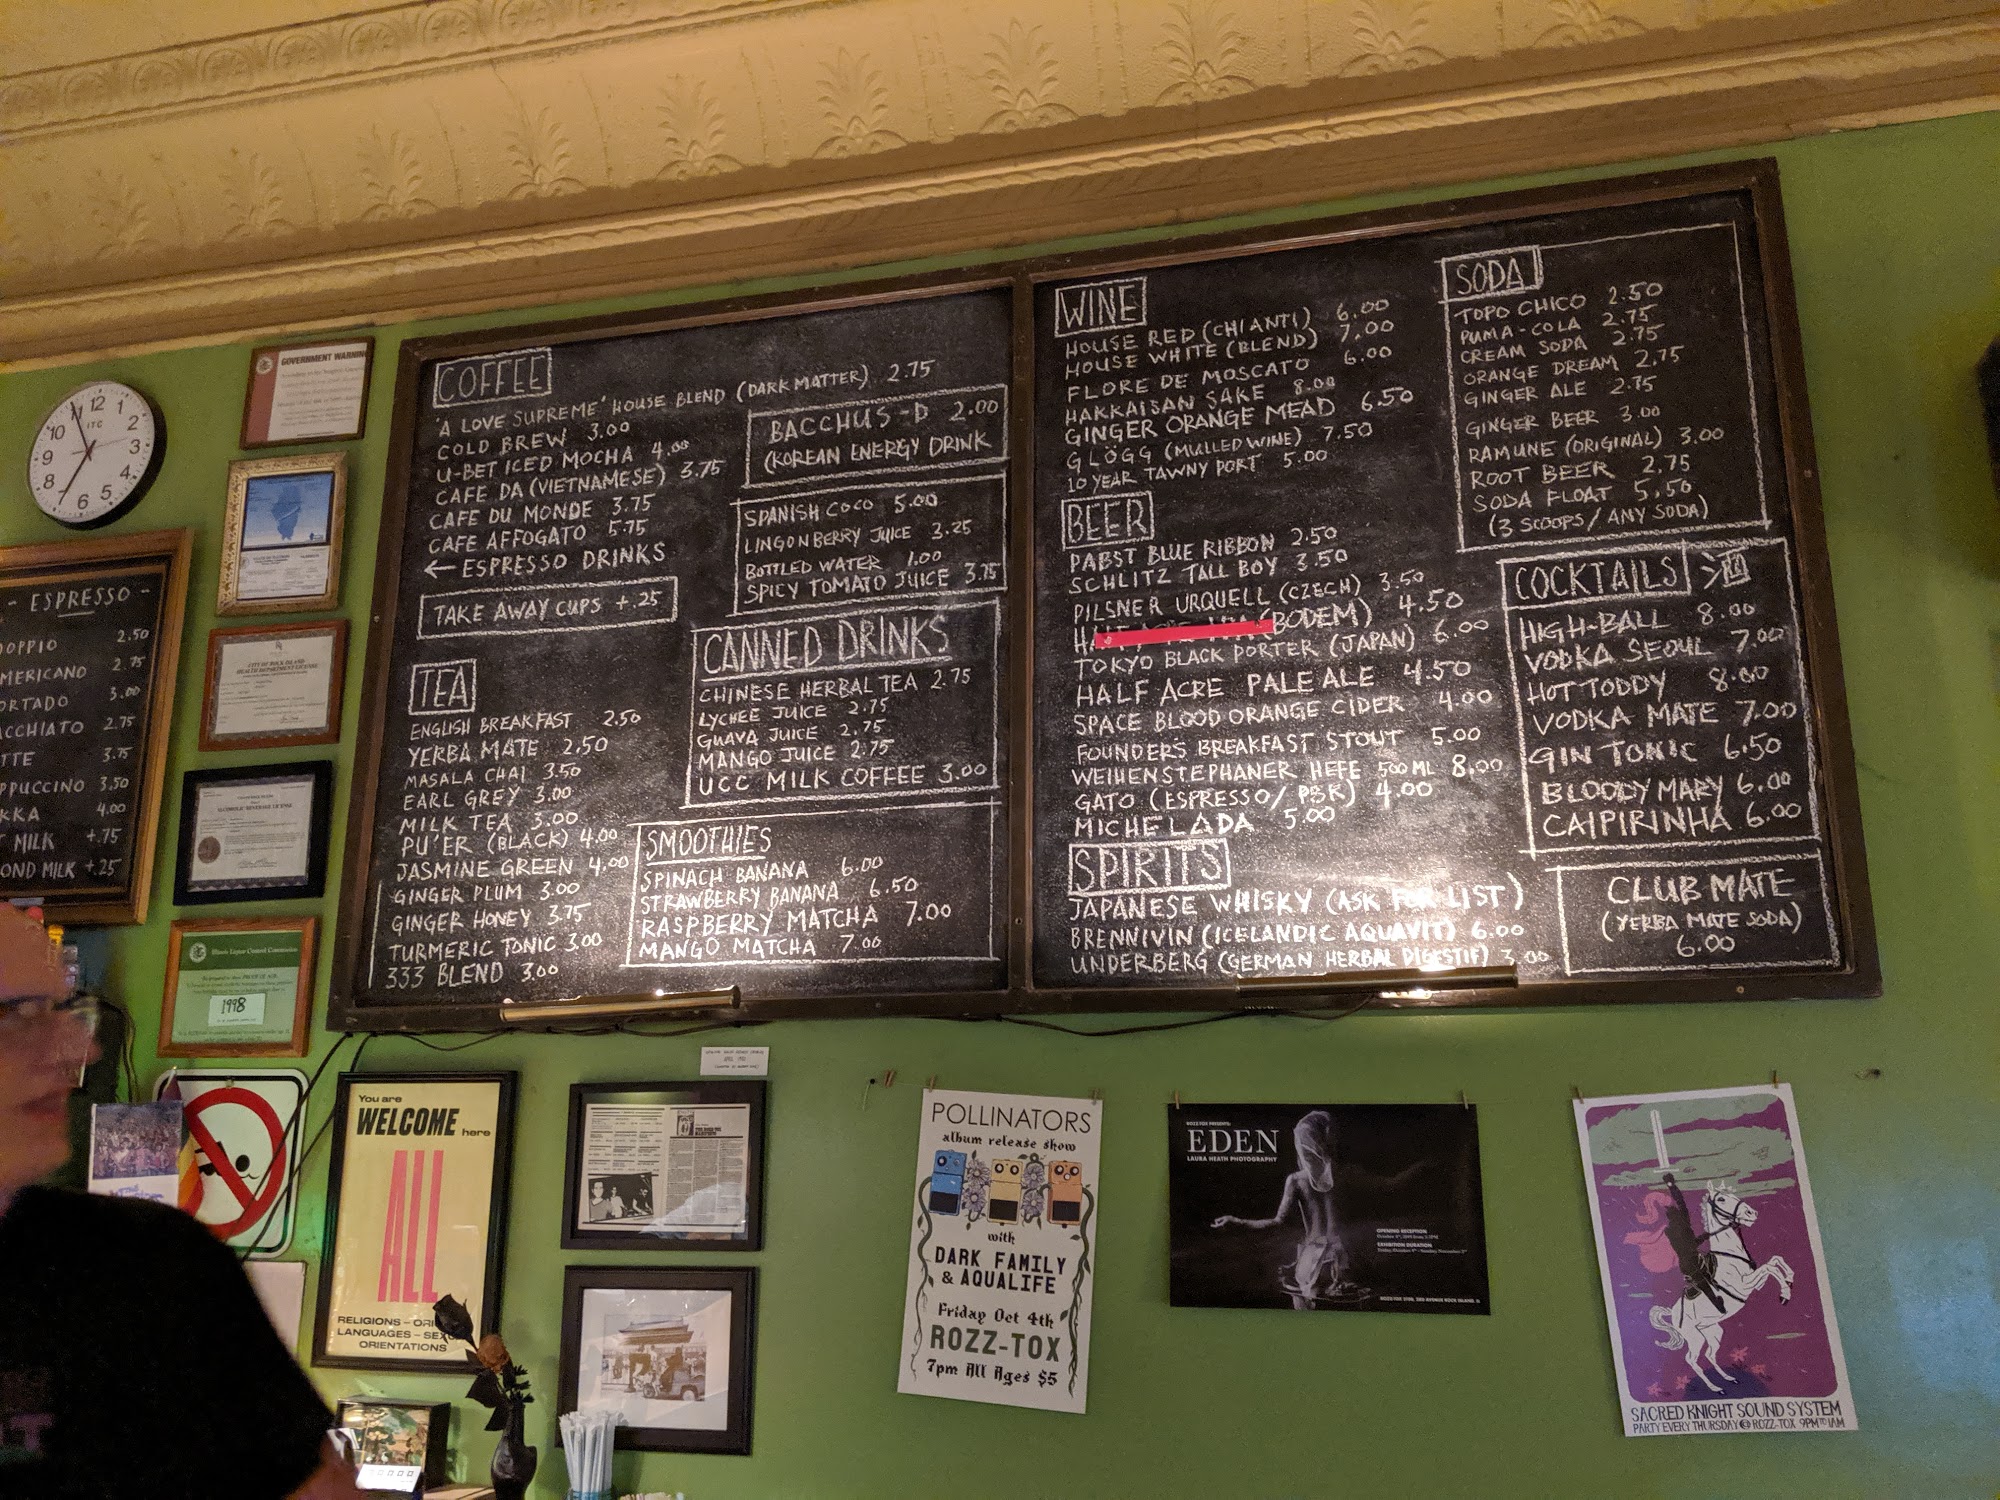 GOVERNMENT WARNING
12
1
2
3
4
5
6
7
8
9
10
11
ITC
- ESPRESSO -
DOPPIO 2.50
MERICANO 2.75
ORTADO 3.00
ACCHIATO 2.75
TTE 3.75
PPUCCINO 3.50
KKA 4.00
MILK +.75
OND MILK +.25
CITY OF ROCK ISLAND
HEALTH DEPARTMENT LICENSE
ALCOHOLIC BEVERAGE LICENSE
Illinois Liquor Control Commission
1998
COFFEE
'A LOVE SUPREME' HOUSE BLEND (DARK MATTER) 2.75
COLD BREW 3.00
U-BET ICED MOCHA 4.00
CAFE DA (VIETNAMESE) 3.75
CAFE DU MONDE 3.75
CAFE AFFOGATO 5.75
← ESPRESSO DRINKS
TAKE AWAY CUPS +.25
BACCHUS-D 2.00
(KOREAN ENERGY DRINK
SPANISH COCO 5.00
LINGONBERRY JUICE 3.25
BOTTLED WATER 1.00
SPICY TOMATO JUICE 3.75
TEA
ENGLISH BREAKFAST 2.50
YERBA MATE 2.50
MASALA CHAI 3.50
EARL GREY 3.00
MILK TEA 3.00
PU'ER (BLACK) 4.00
JASMINE GREEN 4.00
GINGER PLUM 3.00
GINGER HONEY 3.75
TURMERIC TONIC 3.00
333 BLEND 3.00
CANNED DRINKS
CHINESE HERBAL TEA 2.75
LYCHEE JUICE 2.75
GUAVA JUICE 2.75
MANGO JUICE 2.75
UCC MILK COFFEE 3.00
SMOOTHIES
SPINACH BANANA 6.00
STRAWBERRY BANANA 6.50
RASPBERRY MATCHA 7.00
MANGO MATCHA 7.00
WINE
HOUSE RED (CHIANTI) 6.00
HOUSE WHITE (BLEND) 7.00
FLORE DE MOSCATO 6.00
HAKKAISAN SAKE 8.00
GINGER ORANGE MEAD 6.50
GLÖGG (MULLED WINE) 7.50
10 YEAR TAWNY PORT 5.00
BEER
PABST BLUE RIBBON 2.50
SCHLITZ TALL BOY 3.50
PILSNER URQUELL (CZECH) 3.50
(BODEM) 4.50
TOKYO BLACK PORTER (JAPAN) 6.00
HALF ACRE PALE ALE 4.50
SPACE BLOOD ORANGE CIDER 4.00
FOUNDERS BREAKFAST STOUT 5.00
WEIHENSTEPHANER HEFE 500ML 8.00
GATO (ESPRESSO/PBR) 4.00
MICHELADA 5.00
SPIRITS
JAPANESE WHISKY (ASK FOR LIST)
BRENNIVIN (ICELANDIC AQUAVIT) 6.00
UNDERBERG (GERMAN HERBAL DIGESTIF) 3.00
SODA
TOPO CHICO 2.50
PUMA-COLA 2.75
CREAM SODA 2.75
ORANGE DREAM 2.75
GINGER ALE 2.75
GINGER BEER 3.00
RAMUNE (ORIGINAL) 3.00
ROOT BEER 2.75
SODA FLOAT 5.50
(3 SCOOPS/ANY SODA)
COCKTAILS
HIGH-BALL 8.00
VODKA SEOUL 7.00
HOT TODDY 8.00
VODKA MATE 7.00
GIN TONIC 6.50
BLOODY MARY 6.00
CAIPIRINHA 6.00
CLUB MATE
(YERBA MATE SODA)
6.00
You are
WELCOME here
ALL
RELIGIONS –
LANGUAGES –
ORIENTATIONS
POLLINATORS
album release show
with
DARK FAMILY
& AQUALIFE
Friday Oct 4th
ROZZ-TOX
7pm All Ages $5
ROZZ-TOX PRESENTS:
EDEN
LAURA HEATH PHOTOGRAPHY
OPENING RECEPTION
EXHIBITION DURATION
SACRED KNIGHT SOUND SYSTEM
PARTY EVERY THURSDAY @ ROZZ-TOX 9PM TO 1AM